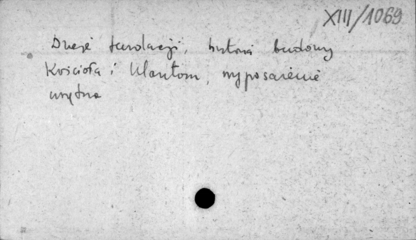 XIII/1069
Dzieje fundacji, historia budowy
Kościoła i klasztoru, wyposażenie
wnętrza